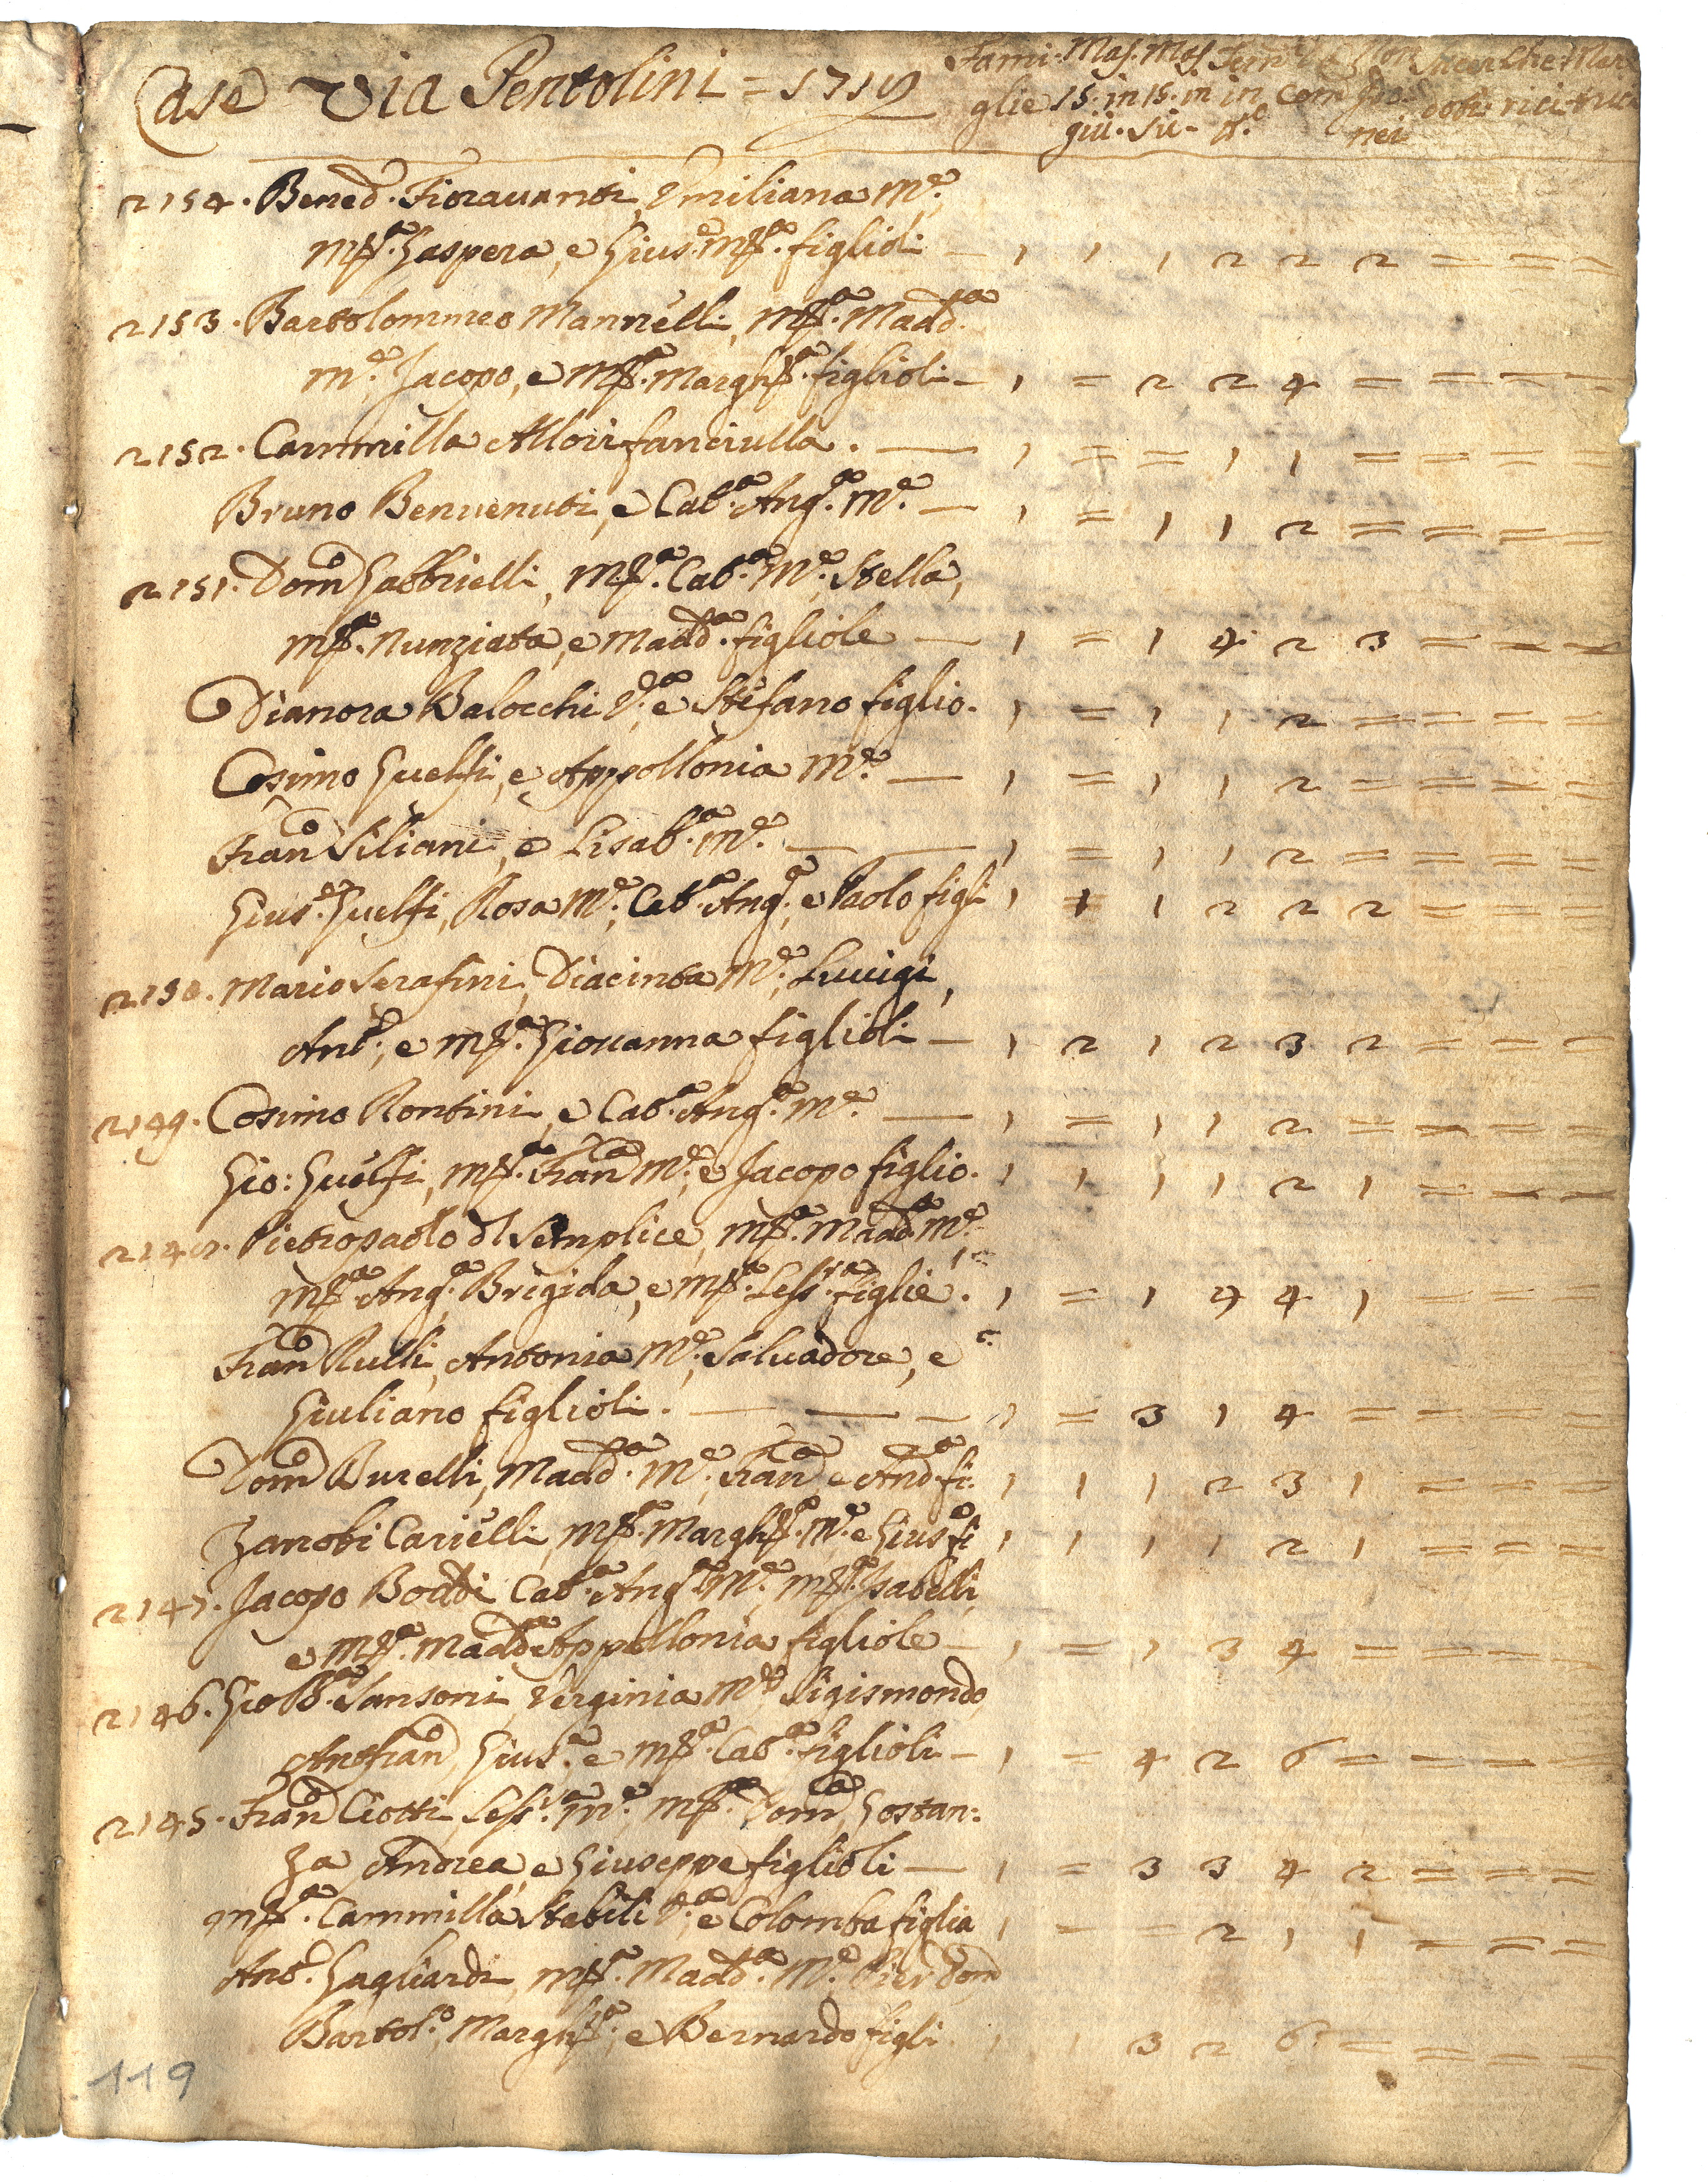 Case Via Pentolini = 1719 Fami: Mas. Mas. Fem:
glie 15. in 15. in in Com
giù. su-
nei
2154. Bened.º Fioravanti, Emiliana M.e,
M.ª Gaspera, e Gius.e M.ª figlioli — 1 1 1 2 2 2 = = =
2153. Bartolommeo Mannelli, M.ª Madd.ª
M.e, Jacopo, e M.ª Margh.ª figlioli — 1 = 2 2 4 = = = =
2152. Cammilla Allori fanciulla. — 1 = = 1 1 = = = =
Bruno Benvenuti, e Cat.ª Ang.ª M.e — 1 = 1 1 2 = = = =
2151. Dom.º Gabbrielli, M.ª Cat.ª M.e, Stella,
M.ª Nunziata, e Madd.ª figliole — 1 = 1 4 2 3 = = =
Dianora Balocchi V.ª, e Stefano figlio. 1 = 1 1 2 = = = =
Cosimo Guelfi, e Appollonia M.e — 1 = 1 1 2 = = = =
Fran.º Siliani, e Lisab.ª M.e — — 1 = 1 1 2 = = = =
Gius.e Guelfi, Rosa M.e, Cat.ª Ang.ª, e Paolo figli 1 1 1 2 2 2 = = =
2150. Mario Serafini, Diacinta M.e, Luuigi,
Ant.º, e M.ª Giouanna figlioli — 1 2 1 2 3 2 = = =
2149. Cosimo Rontini, e Cat.ª Ang.ª M.e — 1 = 1 1 2 = = = =
Gio: Guelfi, M.ª Fran.ª M.e, e Jacopo figlio. 1 1 1 1 2 1 = = =
Pietropaolo dl Semplice, M.ª Madd.ª M.e
M.ª Ang.ª Brigida, e M.ª Less.ra figlie. 1 = 1 4 4 1 = = =
Fran.º Rulli, Antonia M.e, Saluadore, e
Giuliano figlioli. — — — 1 = 3 1 4 = = = =
Dom.º Burelli, Madd.ª M.e, Fran.º e And.ª fi. 1 1 1 2 3 1 = = =
Zanobi Carielli, M.ª Margh.ª M.e e Gius.e fi 1 1 1 1 2 1 = = =
2147. Jacopo Boddi Cat.ª Ang.ª M.e, M.ª Isabelli,
e M.ª Madd.ª Appollonia figliole — 1 = 1 3 4 = = = =
2146. Gio Bª Sansoni, Verginia M.e Sigismondo,
Ant.º Fran.º, Gius.e e M.ª Cat.ª figlioli — 1 = 4 2 6 = = = =
2145. Fran.º Ciotti, Less.ª M.e M.ª Dom.ca, Gostan:
za Andrea, e Giuseppe figlioli — 1 = 3 3 4 2 = = =
M.ª Cammilla Stabili V.ª, e Colomba figlia 1 = = 2 1 1 = = =
Ant.º Gagliardi, M.ª Madd.ª M.e Pier Dom.º
Bartol.º, Margh.ª, e Bernardo figli. 1 1 3 2 6 = = = =
119